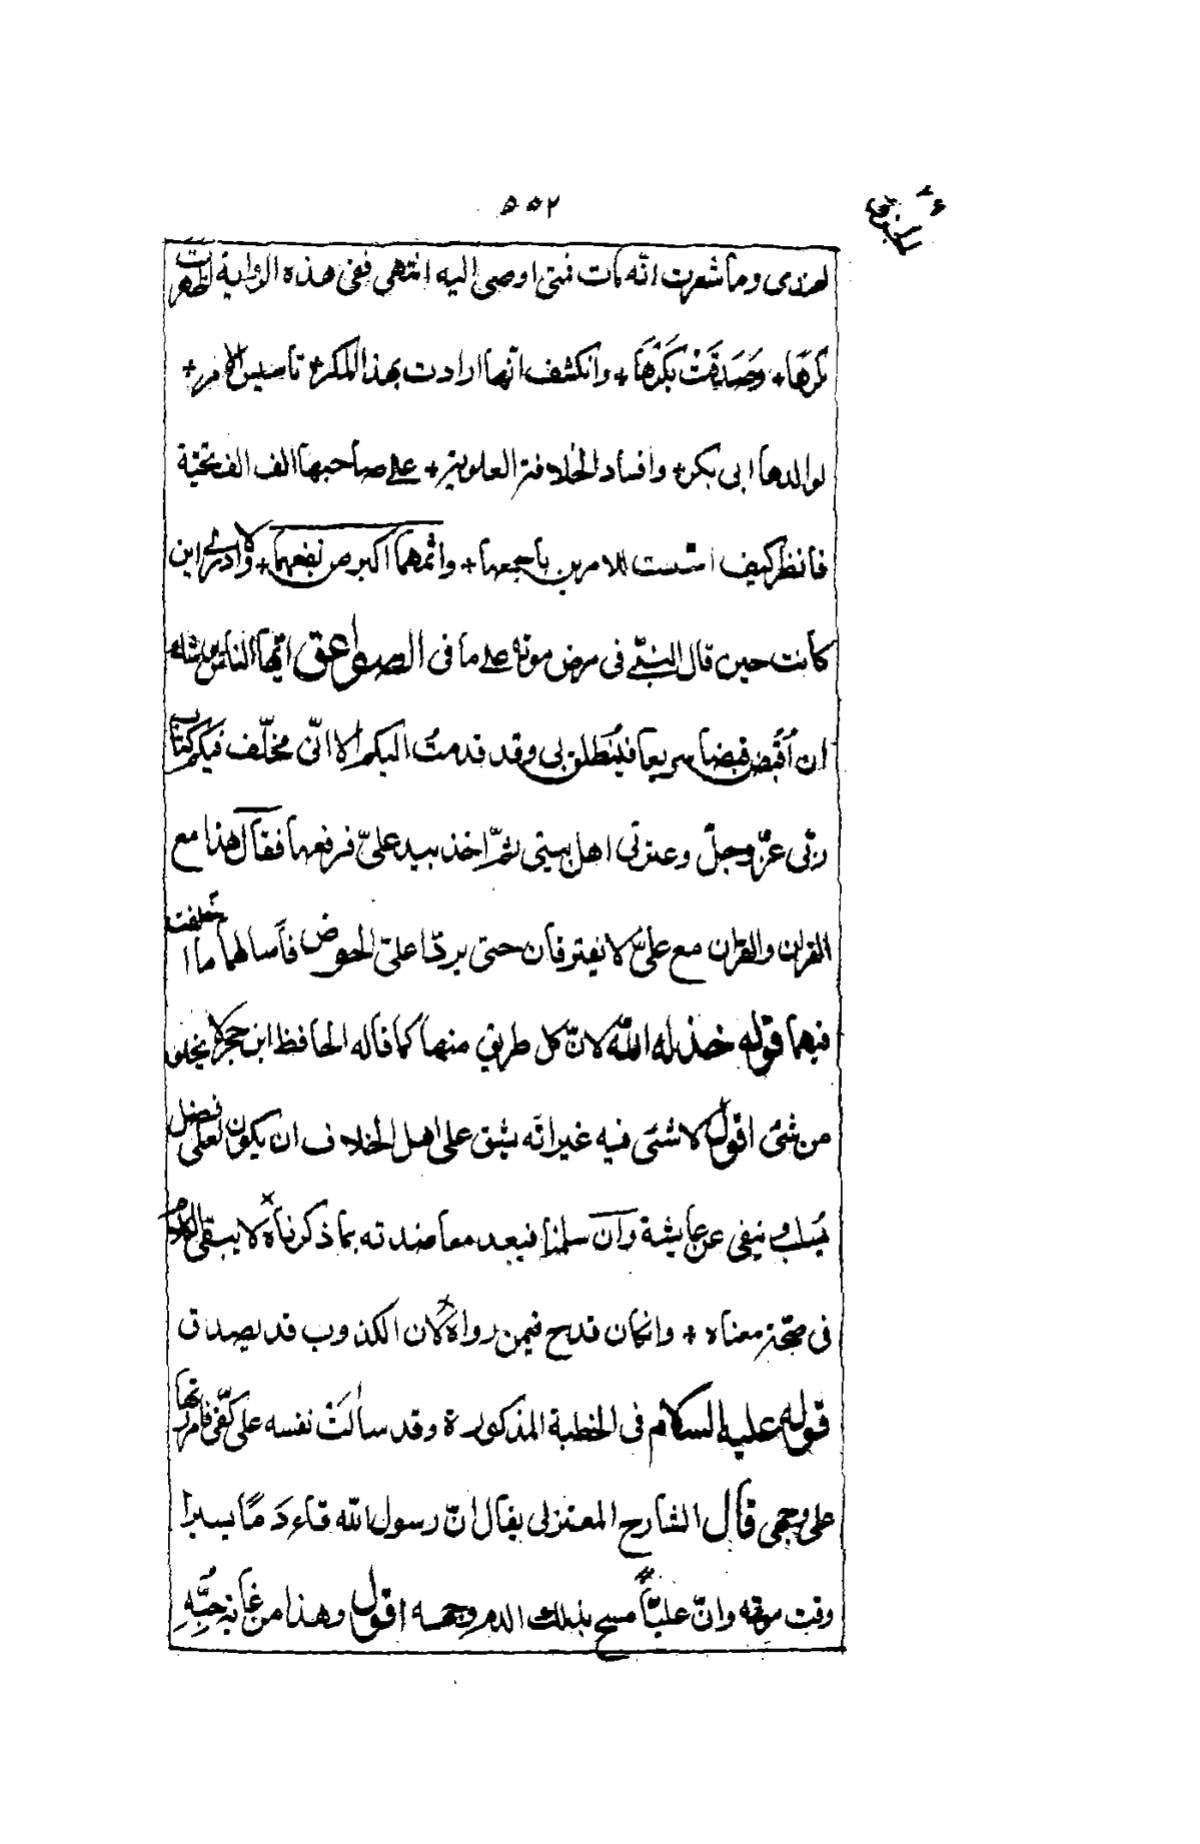 ۵۵۲
لصدری وما شعرت انّه مات فمتی اوصی الیه انتهی ففی هذه الروایة اظهرت
مَکرَهَا + وَصَدقَتْ بَکرَهَا + وانکشف انّها ارادت بهذا المکر + تاسیس الامر +
لوالدها ابی بکر + وافساد الخلافة العلویة + علی صاحبها الف الف تحیّة
فانظر کیف اسست للامرین باجمعها + واثمهما اکبر من نفعهما + ولا ادری این
کانت حین قال النبیّ فی مرض موته علی ما فی الصواعق ایّها الناس یوشك
ان اُقبَض قبضا سریعا فیُنطلق بی وقد قدمتُ الیکم الا انّی مخلّف فیکم کتاب
ربّی عزّ وجلّ وعترتی اهل بیتی ثمّ اخذ بید علیّ فرفعها فقال هذا مع
القرآن والقرآن مع علیّ لا یفترقان حتی یردا علیّ الحوض فاسالهما ما خلفت
فیهما قوله خذله اللّه لانّ کل طریق منها کما قاله الحافظ ابن حجر لا یخلو
من شئ اقول لا شئی فیه غیر انّه یشق علی اهل الخلاف ان یکون لعلی فضل
یُسلب وینفی عن عایشة وان سلمنا فبعد معاضدته بما ذکرناه لا یبقی الکلام
فی صحّة معناه + وانکان قدح فیمن رواه لان الکذوب قد یصدق
قوله علیه السلام فی الخطبة المذکورة وقد سالت نفسه علی کفّی فامررتها
علی وجهی قال الشارح المعتزلی یقال انّ رسول اللّه قاء دَمًا یسیرا
وقت موته وانّ علیّاً مسح بذلك الدم وجهه اقول وهذا من غایة حُبِّهِ